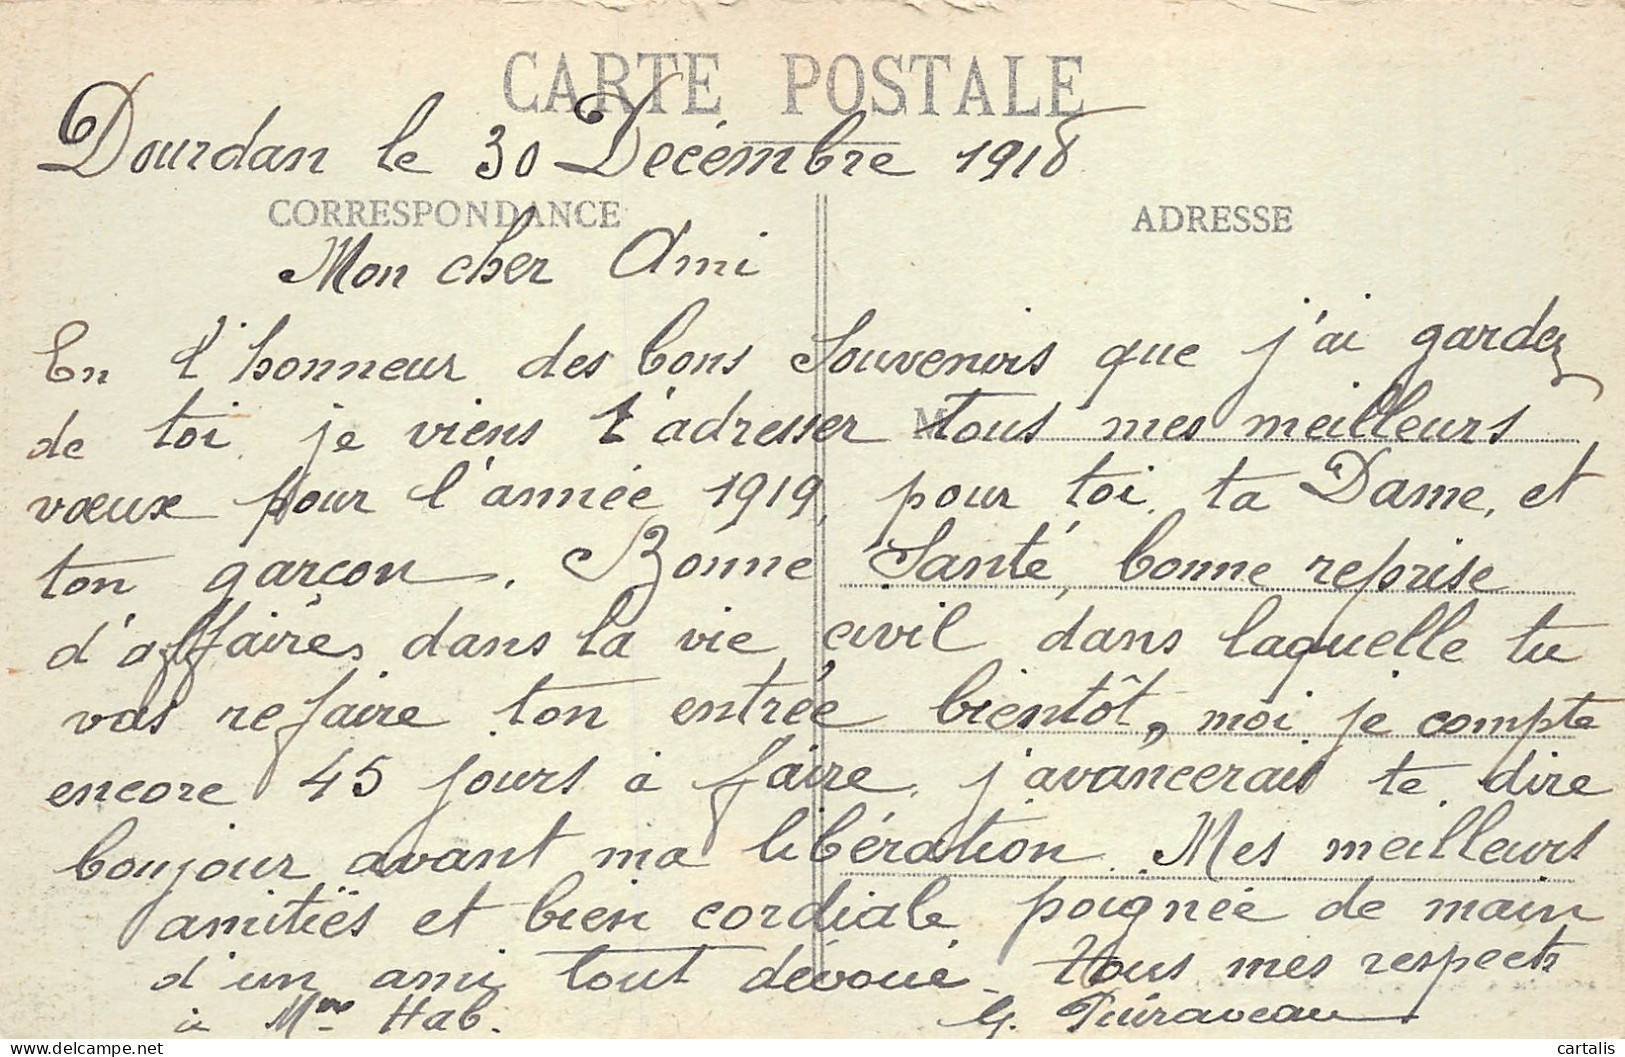 CARTE POSTALE
Dourdan le 30 Décembre 1918
CORRESPONDANCE ADRESSE
Mon cher Ami
En l'honneur des bons Souvenirs que j'ai gardez
M
de toi, je viens t'adresser tous mes meilleurs
vœux pour l'année 1919, pour toi, ta Dame, et
ton garçon. Bonne Santé, bonne reprise
d'affaires dans la vie civil dans laquelle tu
vas refaire ton entrée bientôt, moi je compte
encore 45 jours à faire, j'avancerais te dire
bonjour avant ma libération. Mes meilleurs
amitiés et bien cordiale poignée de main
d'un ami tout dévoué. Tous mes respects
à Mme Hab. G. Puiraveau
cartalis